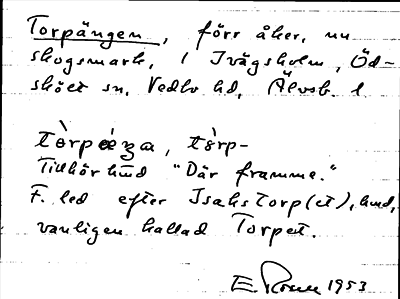 Torpängen, förr åker, nu
skogsmark, i Ivägsholm, Öd-
sköt sn, Vedbo hd, Älvsb. l
tòrpæ̀ŋa, tòrp-
Tillhör hmd "Där framme."
F. led efter Isaks Torp(et), hmd,
vanligen kallad Torpet.
1953